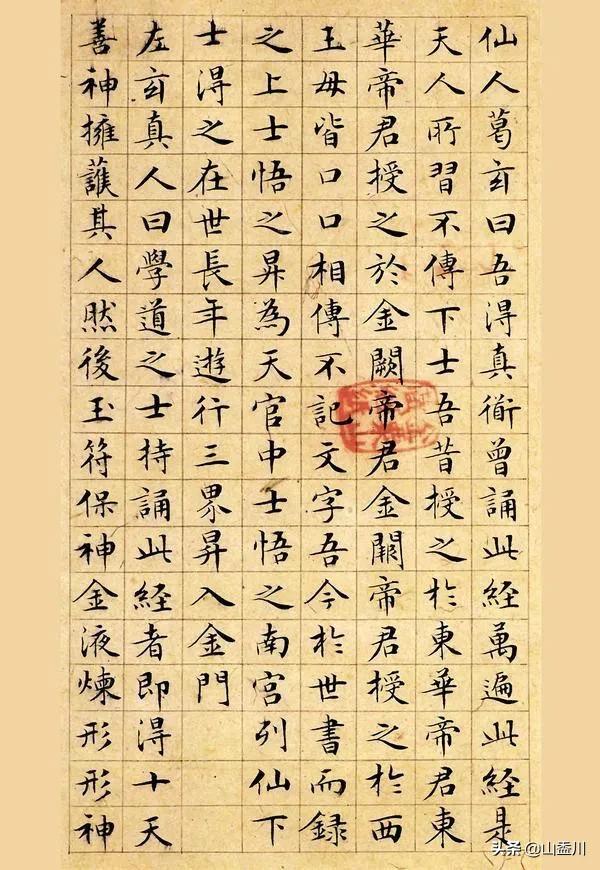 仙人葛玄曰吾得真衜曾誦此経萬遍此経是
天人所習不傳下士吾昔授之於東華帝君東
華帝君授之於金闕帝君金闕帝君授之於西
王母皆口口相傳不記文字吾今於世書而録
之上士悟之昇為天官中士悟之南宮列仙下
士得之在世長年遊行三界昇入金門
左玄真人曰學道之士持誦此経者即得十天
善神擁護其人然後玉符保神金液煉形形神
头条 @山盉川